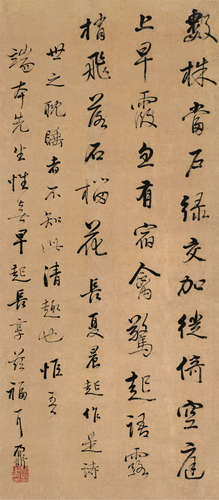 數株當户綠交加徙倚空庭
上早霞忽有宿禽驚起語露
梢飛落石榴花長夏晨起作是詩
世之耽睡者不知此清趣也惟吾
端本先生性喜早起長享茲福可